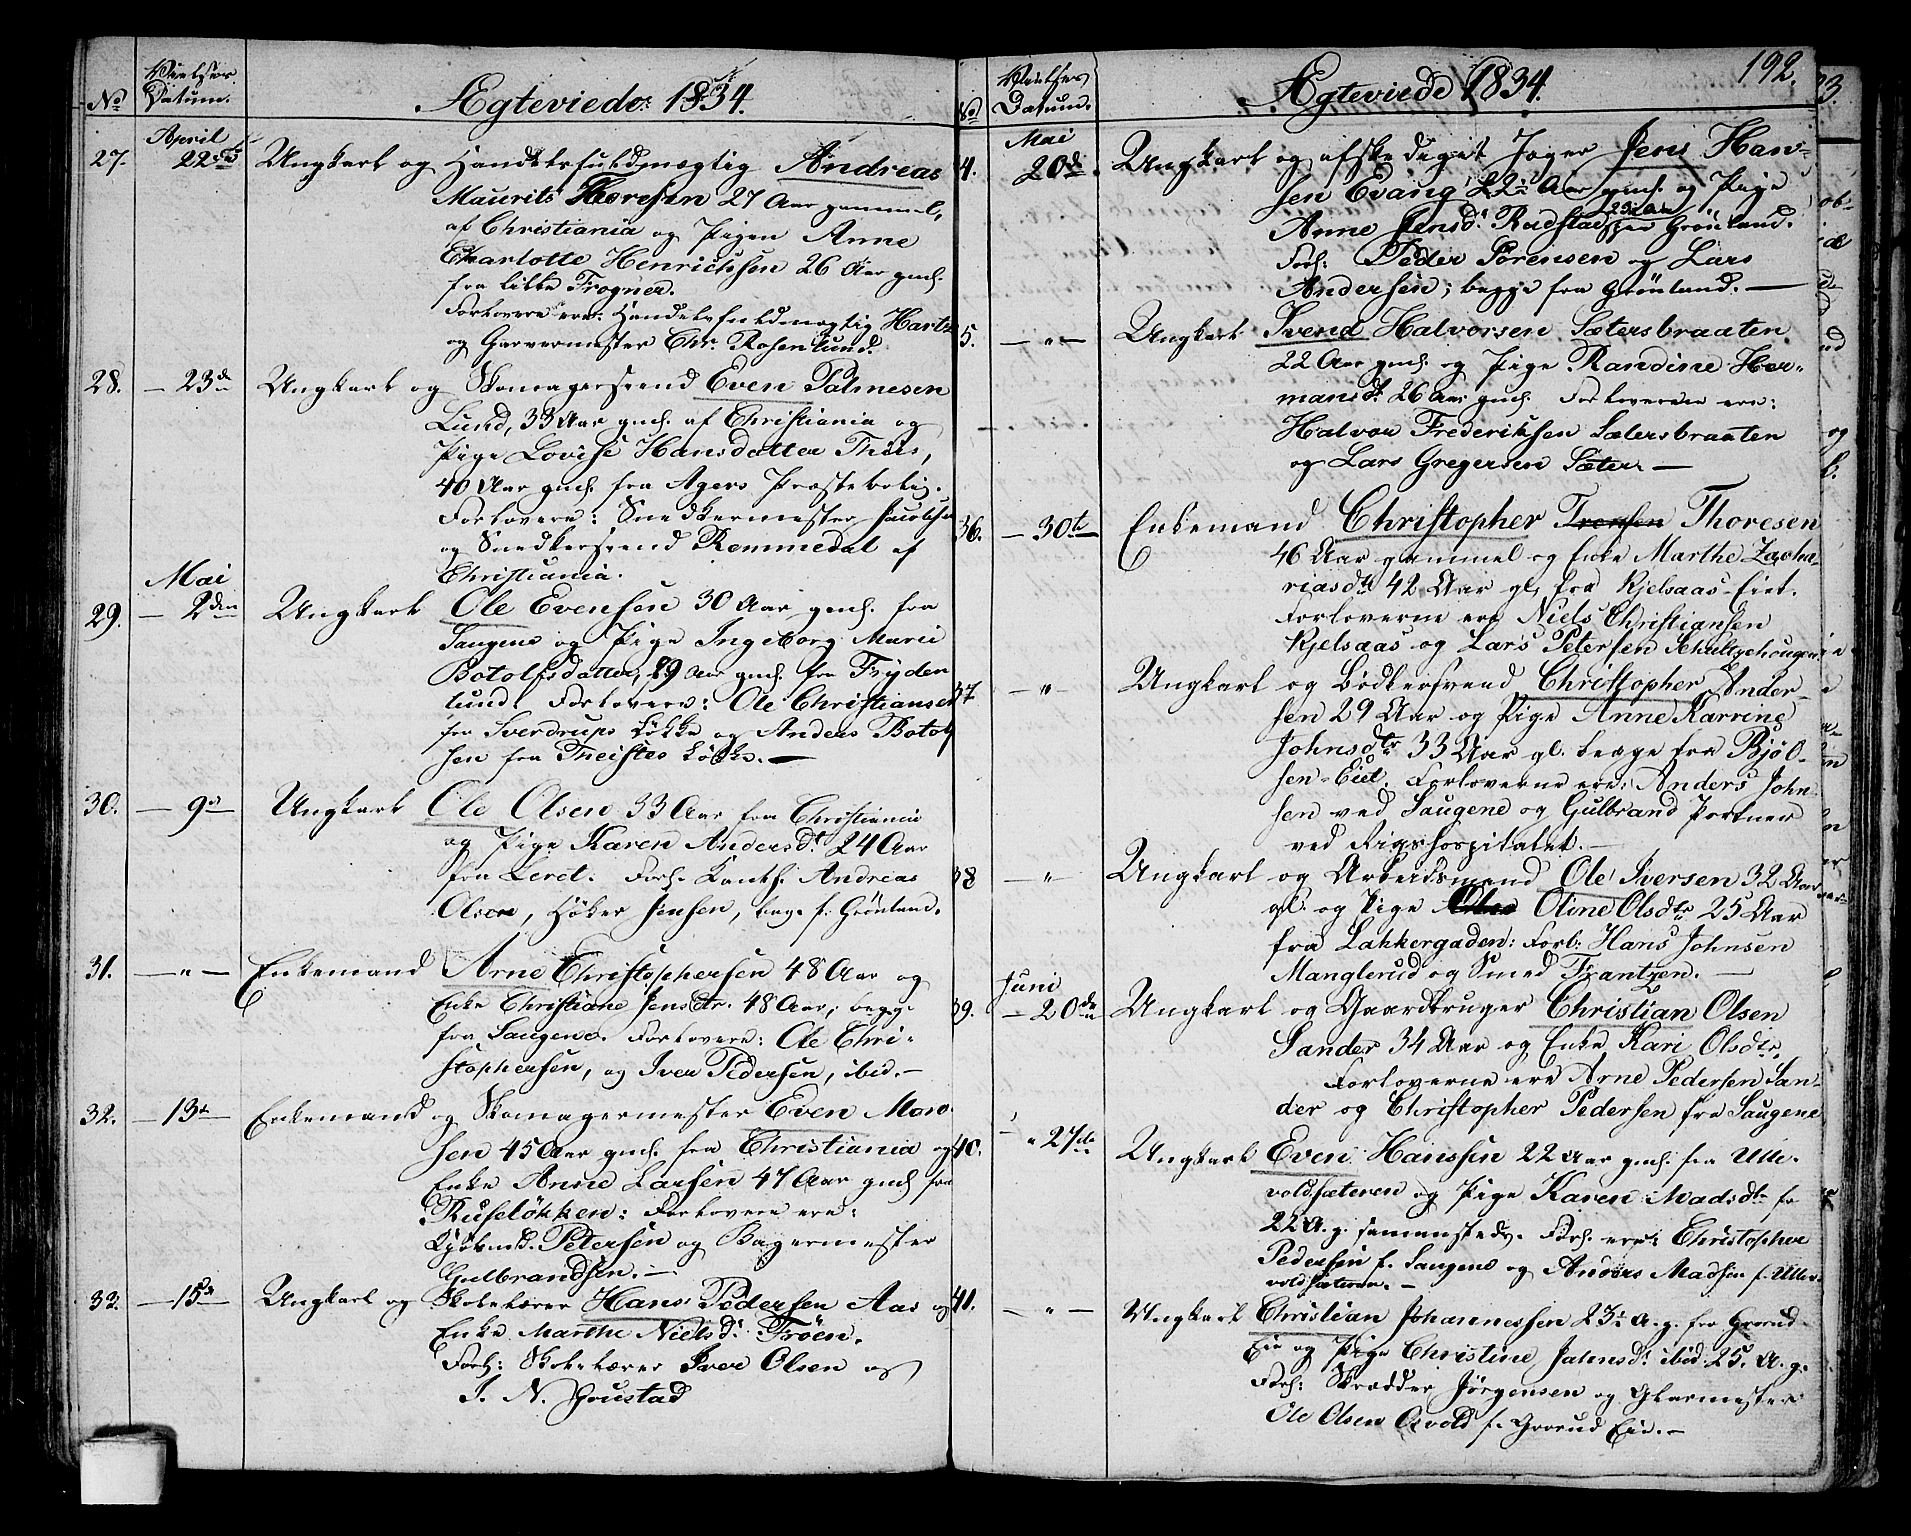 No
Vielses
Datum.
Ægteviede 1834.
April
27. 22de Ungkarl og Handelsfuldmægtig Andreas
Maurits Thoresen 27 Aar gammel,
af Christiania og Pigen Anne
Charlotte Henrichsen 26 Aar gml.
fra lille Frogner.
Forlovere ere: Handelsfuldmægtig Hartz
og Garvermester Chr. Rosenlund.
28. – 23de Ungkarl og Skomagersvend Even Palmesen
Lund, 33 Aar gml. af Christiania og
Pige Lovise Hansdatter Thiis,
40 Aar gml. fra Agers Præstebolig.
Forlovere: Snedkermester Jacobsen
og Snedkersvend Remmedal af
Christiania.
Mai
29. – 2den Ungkarl Ole Evensen 30 Aar gml. fra
Saugene og Pige Ingeborg Marie
Botolfsdatter, 29 Aar gml. fra Fryden
lund. Forlovere: Ole Christiansen
fra Sverdrups Løkke og Anders Botolf
sen fra Theistes Løkke. –
30. – 9de Ungkarl Ole Olsen 33 Aar fra Christiania
og Pige Karen Andersdr 24 Aar
fra Leret. Forl. Andreas
Olsen, Høker Jensen, beg. f. Grønland.
31. – " – Enkemand Arne Christophersen 48 Aar og
Enke Christiane Jensdtr. 48 Aar, begge
fra Saugene. Forlovere: Ole Chri-
stophersen, og Iver Pedersen, ibid. –
32. – 13de Enkemand og Skomagermester Even Mon
sen 45 Aar gml. fra Christiania og
Enke Anne Larsen 47 Aar gml fra
Ruseløkken: Forlovere ere:
Kjøbmd. Petersen og Bagermester
Gulbrandsen. –
33. – 15de Ungkarl og Skolelærer Hans Pedersen Aas og
Enke Marthe Nielsdr Trøen.
Forl: Skolelærer Iver Olsen og
J. N. Goustad
192.
No
Vielses
Datum.
Ægteviede 1834.
Mai
4. 20de. Ungkarl og afskediget Jæger Jens Han-
sen Evang 22½ Aar gml. og Pige
23 Aar
Anne Jensdr. Rudstad per Grønland.
Forl: Peder Sørensen og Lars
Andersen; begge fra Grønland. –
5. – " – Ungkarl Svend Halvorsen Sætersbraaten
22 Aar gml. og Pige Randine Her-
mansdr 26 Aar gml. Forlovere ere:
Halvor Frederiksen Sætersbraaten
og Lars Gregersen Sæter –
36. – 30te – Enkemand Christopher Thoresen
46 Aar gammel og Enke Marthe Zacha-
riasdtr 42 Aar gl, fra Kjelsaas-Eiet.
Forloverne ere Niels Christiansen
Kjelsaas og Lars Petersen Schultzehougen
37 – " Ungkarl og Bødkersvend Christopher Ander-
sen 29 Aar og Pige Anne Karrine
Johnsdtr 33 Aar gl. begge fra Bjøl-
sen-Eiet, Forloverne ere: Anders John
sen ved Saugene og Gulbrand Portner
ved Rigshospitalet. –
38 – " Ungkarl og Arbeidsmand Ole Iversen 32 Aar
gl. og Pige Oline Olsdtr 25 Aar
fra Lakkergaden: Forl: Hans Johnsen
Manglerud og Smed Frantzen. –
Juni
39. – 20de Ungkarl og Gaardbruger Christian Olsen
Sander 34 Aar og Enke Kari Olsdtr,
Forloverne ere Arne Pedersen San-
der og Christopher Pedersen fra Saugene
40. " 27de Ungkarl Even Hanssen 22 Aar gml. fra Ulle-
voldsæteren og Pige Karen Madsdr fr
22 A. g. sammesteds. Forl. ere: Christopher
Pedersen f. Saugene og Anders Madsen f. Ulle-
voldsæteren. –
41. – " – Ungkarl Christian Johannessen 23½ A. g. fra Grorud-
Eie og Pige Christine Jahnsdr ibid. 25. A. g.
Forl: Skrædder Jørgensen og Glarmester
Ole Olsen Osvold f. Grorud Eie. –